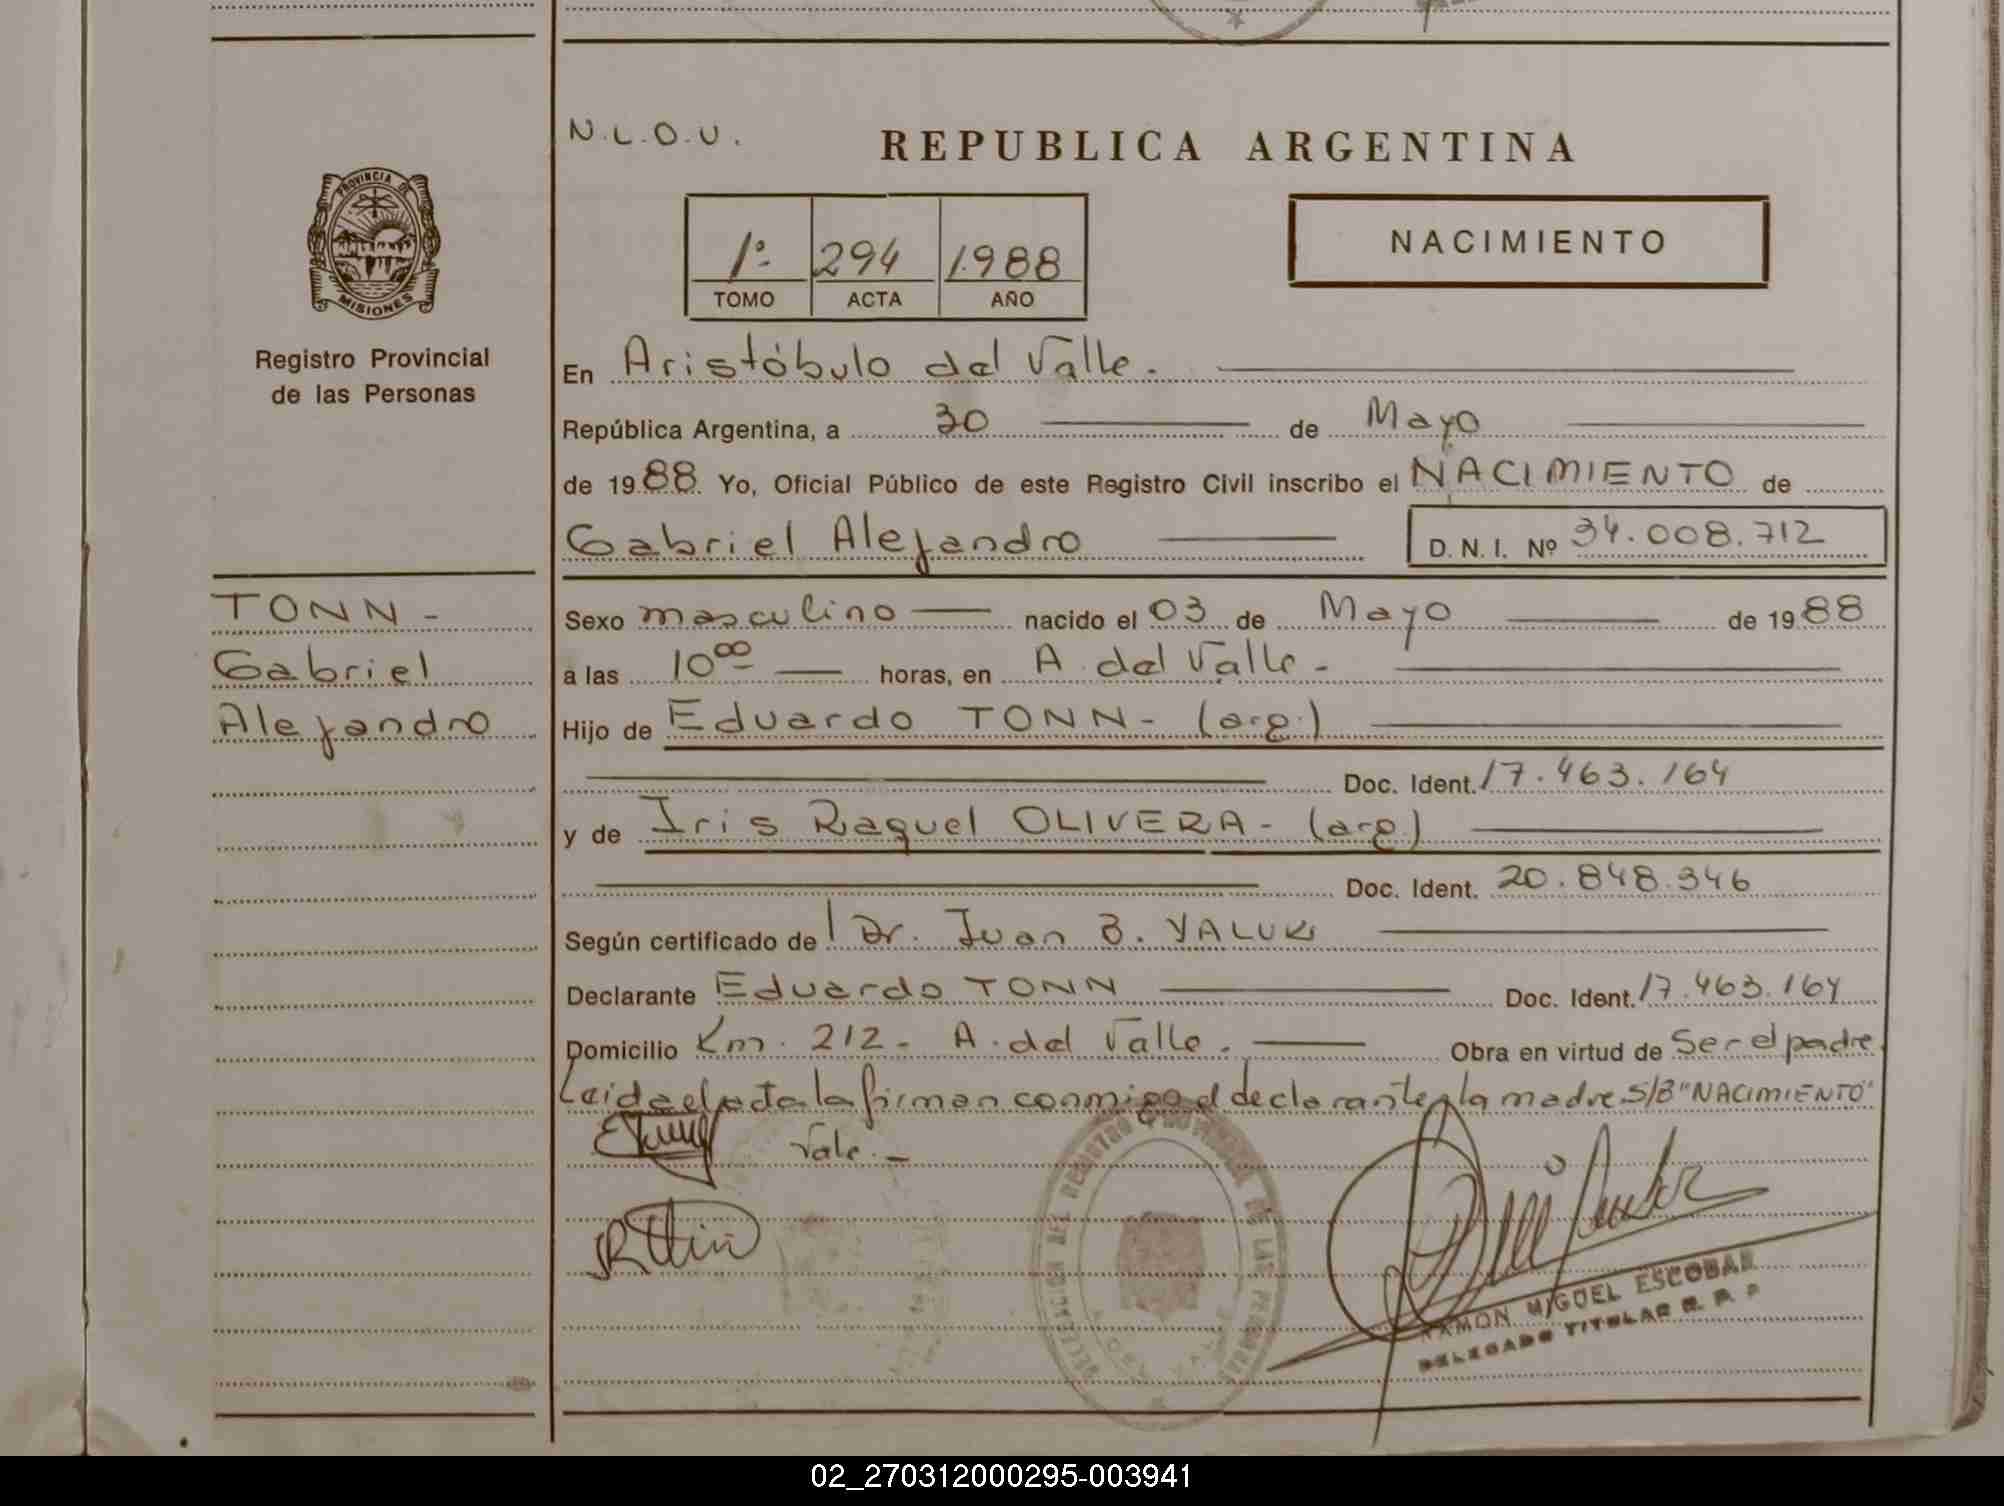 N.L.O.U.
REPUBLICA ARGENTINA
PROVINCIA DE
MISIONES
1º 294 1.988
TOMO ACTA AÑO
NACIMIENTO
Registro Provincial
de las Personas
En Aristóbulo del Valle.
República Argentina, a 30 de Mayo
de 1988. Yo, Oficial Público de este Registro Civil inscribo el NACIMIENTO de
Gabriel Alejandro D.N.I. Nº 34.008.712
TONN -
Gabriel
Alejandro
Sexo masculino nacido el 03 de Mayo de 1988
a las 10 00 horas, en A. del Valle -
Hijo de Eduardo TONN - (arg.)
Doc. Ident. 17.463.164
y de Iris Raquel OLIVERA - (arg.)
Doc. Ident. 20.848.346
Según certificado de Dr. Juan B. YALUK
Declarante Eduardo TONN Doc. Ident. 17.463.164
Domicilio Km. 212 - A. del Valle. Obra en virtud de Ser el padre
Leida el acta la firman conmigo el declarante y la madre. S/B "NACIMIENTO"
Vale. -
REGISTRO PROVINCIAL DE LAS PERSONAS
RAMON MIGUEL ESCOBAR
DELEGADO TITULAR R. P. P
02_270312000295-003941